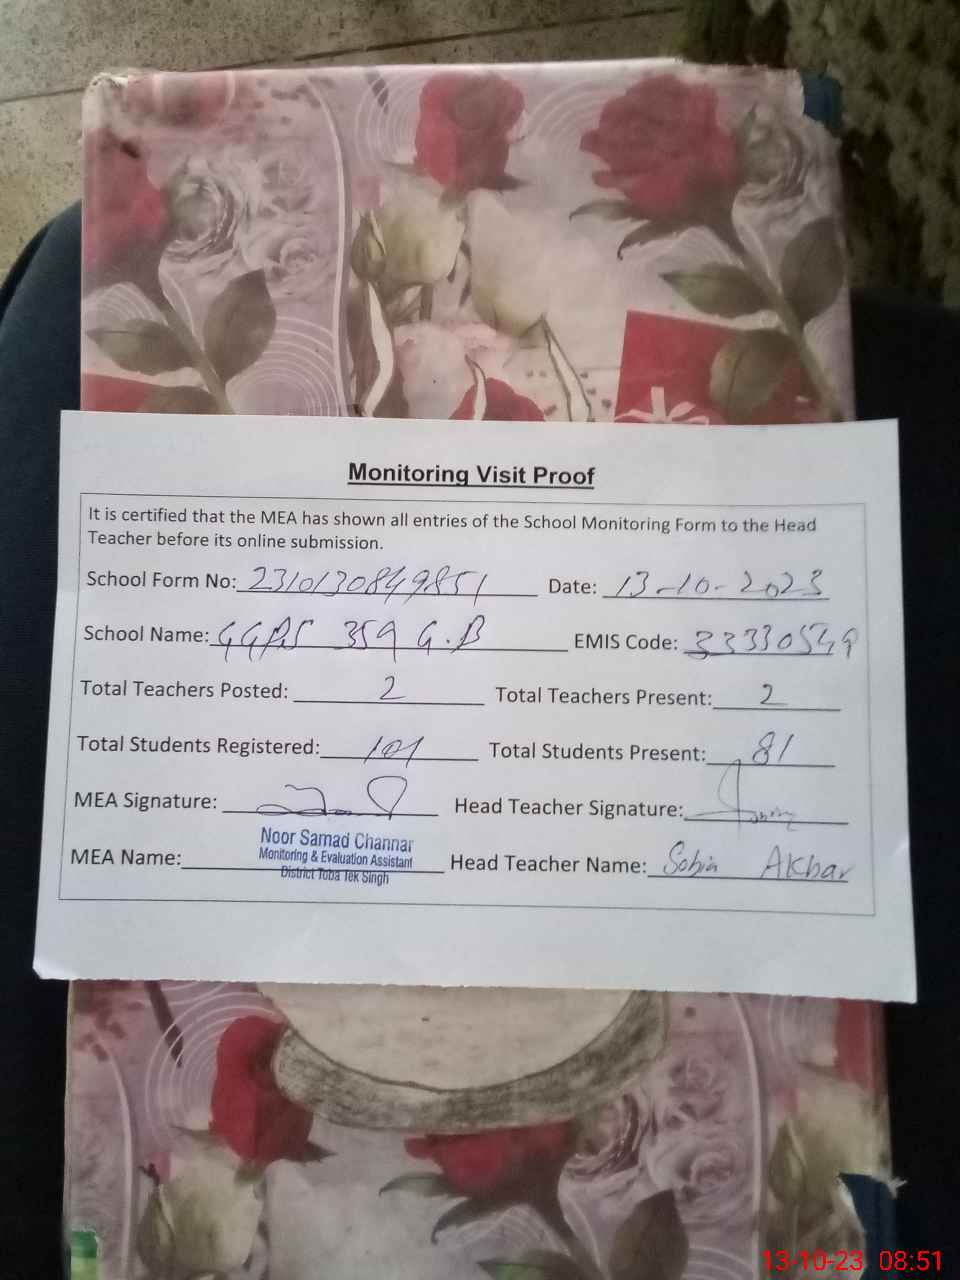 Monitoring Visit Proof
It is certified that the MEA has shown all entries of the School Monitoring Form to the Head
Teacher before its online submission.
School Form No: 2310130849851 Date: 13-10-2023
School Name: GGPS 359 G.B EMIS Code: 33330549
Total Teachers Posted: 2 Total Teachers Present: 2
Total Students Registered: 101 Total Students Present: 81
MEA Signature: Head Teacher Signature:
Noor Samad Channar
Monitoring & Evaluation Assistant
District Toba Tek Singh
MEA Name: Head Teacher Name: Sobia Akbar
13-10-23 08:51